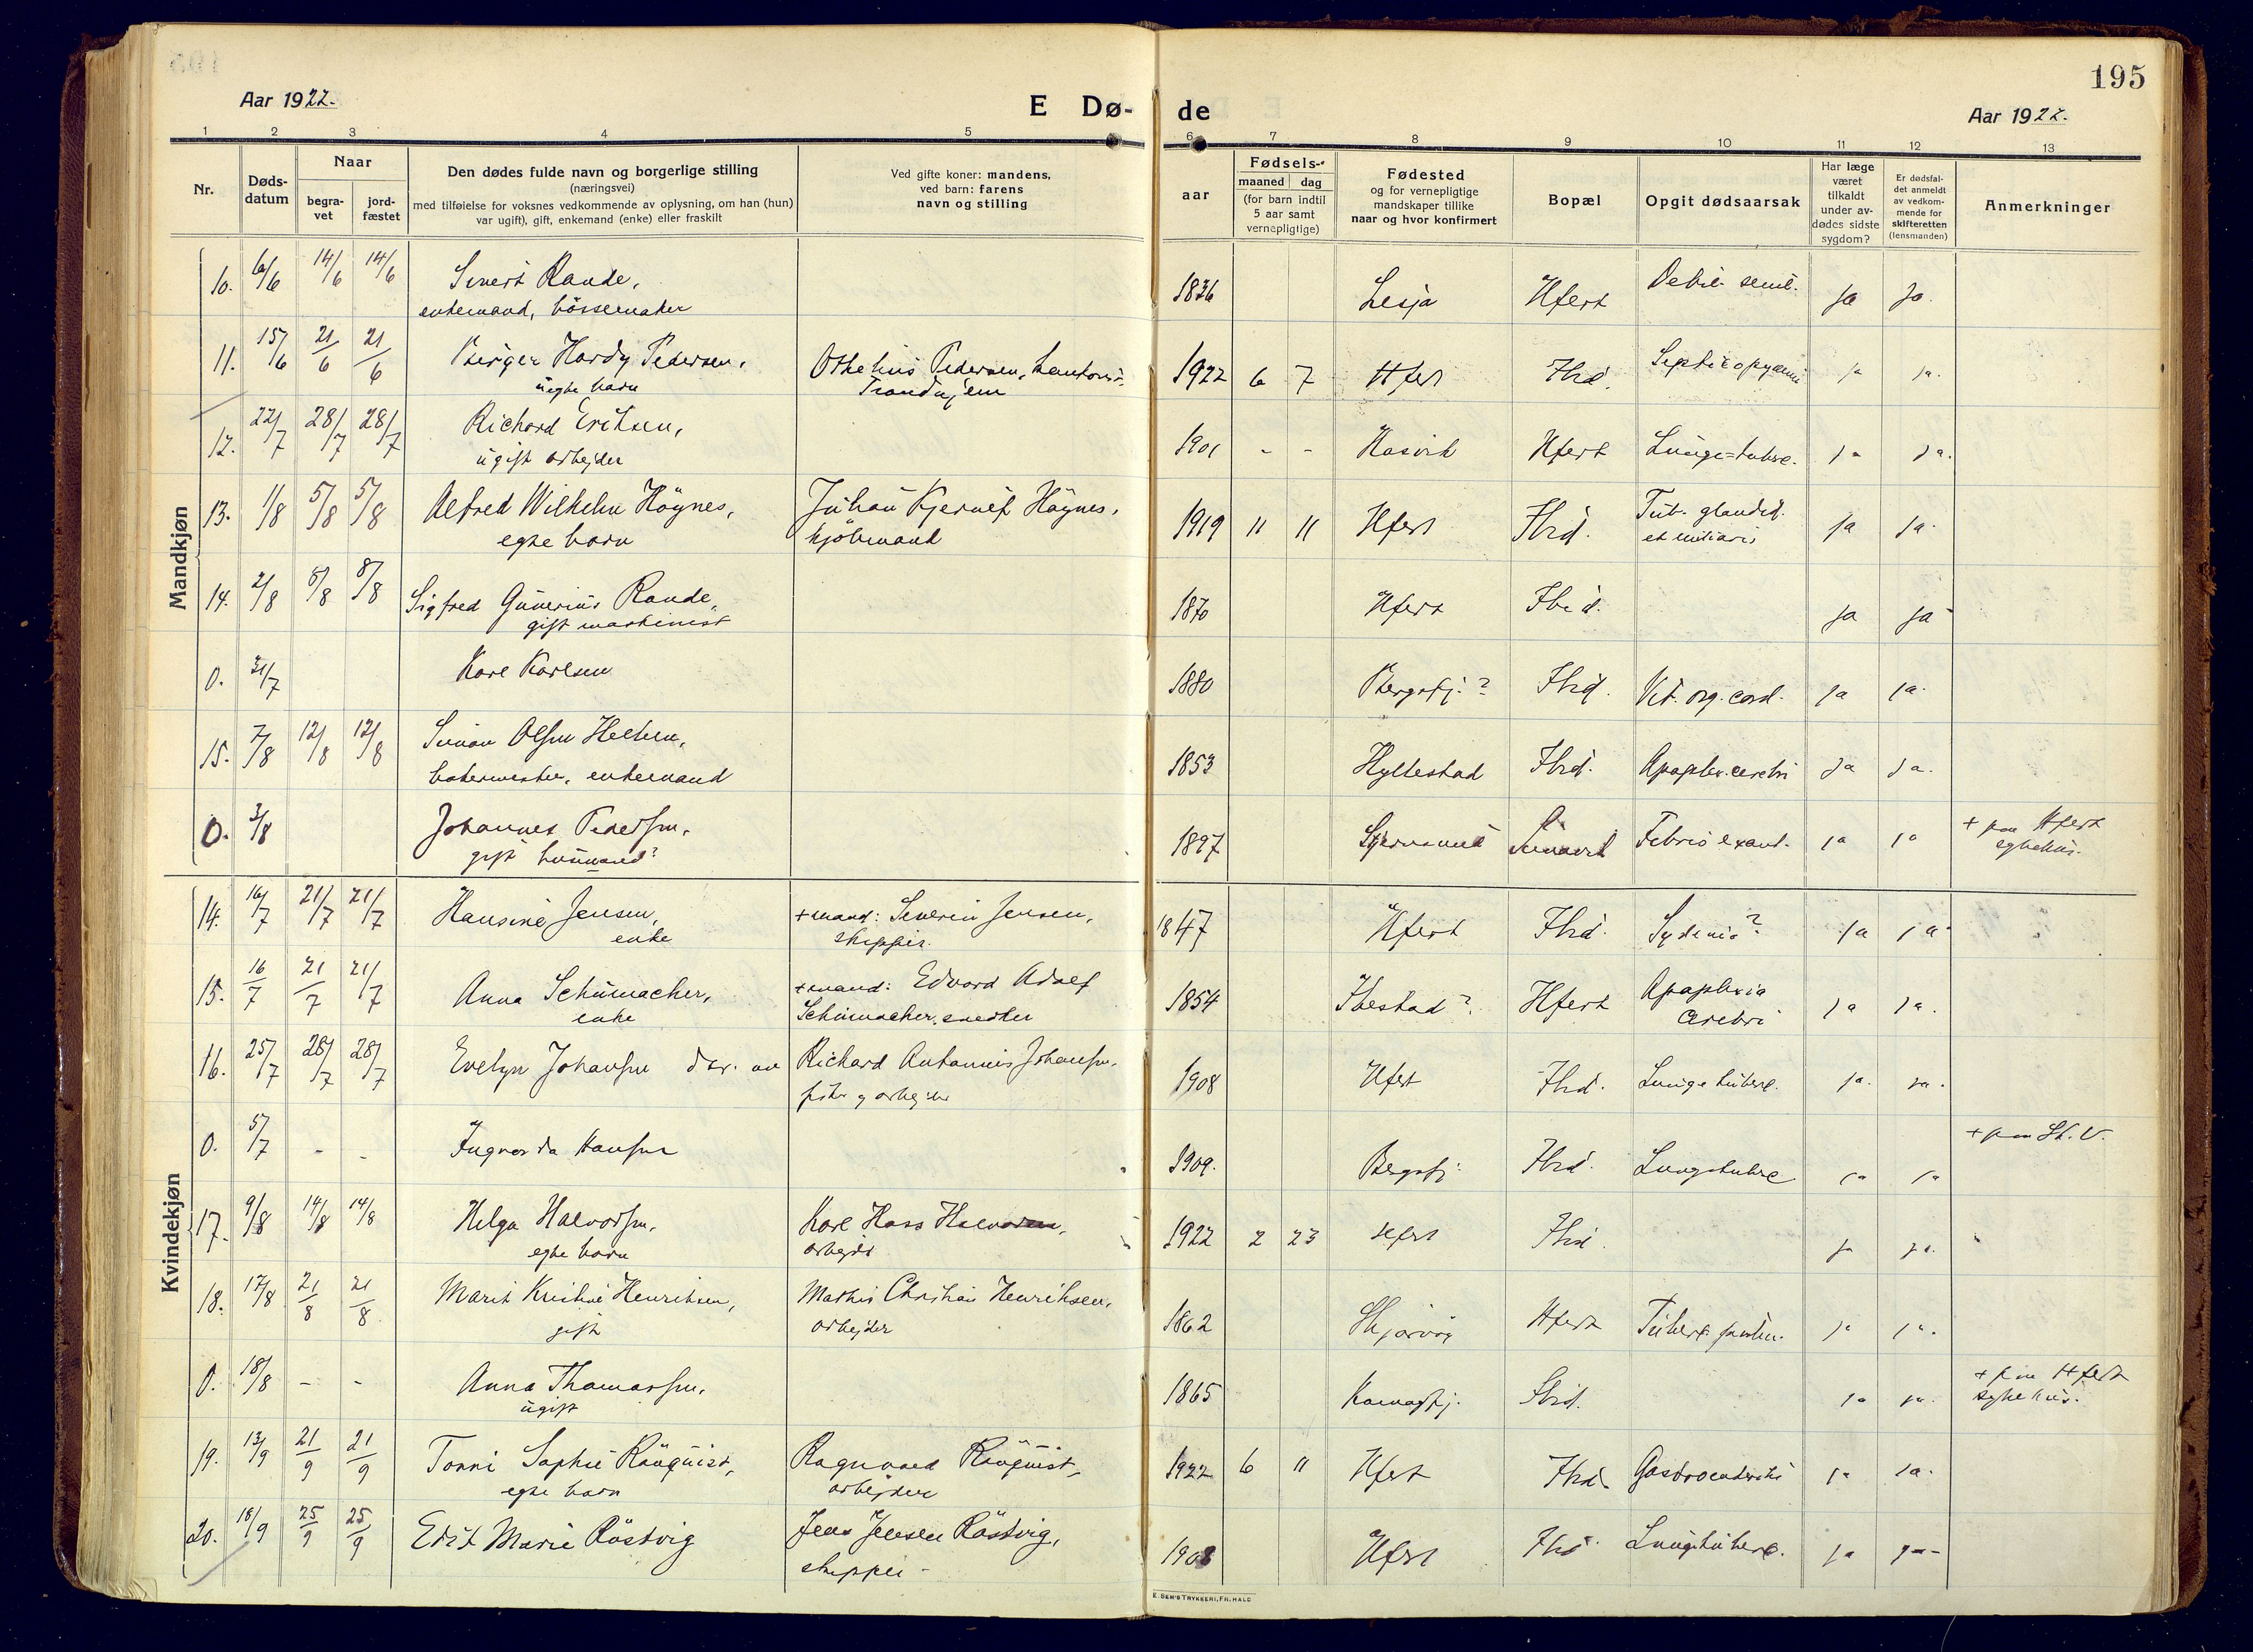 195
Aar 1922.
E Dø-
de
Aar 1922.
1 2 3 4 5 6 7 8 9 10 11 12 13
Nr.
Døds-
datum
Naar
begra-
vet
jord-
fæstet
Den dødes fulde navn og borgerlige stilling
(næringsvei)
med tilføielse for voksnes vedkommende av oplysning, om han (hun)
var ugift), gift, enkemand (enke) eller fraskilt
Ved gifte koner: mandens,
ved barn: farens
navn og stilling
aar
Fødsels-
maaned dag
(for barn indtil
5 aar samt
vernepligtige)
Fødested
og for vernepligtige
mandskaper tillike
naar og hvor konfirmert
Bopæl
Opgit dødsaarsak
Har læge
været
tilkaldt
under av-
dødes sidste
sygdom?
Er dødsfal-
det anmeldt
av vedkom-
mende for
skifteretten
(lensmanden)
Anmerkninger
Mandkjøn
10. 6/6 14/6 14/6 Sivert Rande, 1836 Lesja Hfest Debil. senil. ja ja.
enkemand, bössemaker
11. 15/6 21/6 21/6 Birger Hardy Pedersen, Othelius Pedersen, 1922 6 7 Hfest Ibid. Septicopyæmi ja ja.
uegte barn Trondhjem
12. 22/7 28/7 28/7 Richard Eriksen, 1901 - - Hasvik Hfest Lunge=tuberc. ja ja.
ugift arbejder
13. 1/8 5/8 5/8 Alfred Wilhelm Höynes, Johan Kjerulf Höynes, 1919 11 11 Hfest Ibid. Tub. glandul.
egte barn kjöbmand et miliaris ja ja.
14. 2/8 8/8 8/8 Sigfred Gunerius Rande, 1870 Hfest Ibid. ja ja
gift maskinist
0. 31/7 Karl Karlsen 1880 Bergsfj.? Ibid. Vit. org. cord. ja ja.
15. 7/8 12/8 12/8 Simon Olsen Hellem, 1853 Hyllestad Ibid. Apoplex. cerebri ja ja.
bakermester, enkemand
0. 3/8 Johannes Pedersen, 1897 Stjernsund Febris exant. ja ja + paa Hfest
gift sykehus.
Kvindekjøn
14. 16/7 21/7 21/7 Hansine Jensen, + mand: Severin Jensen, 1847 Hfest Ibid. ja ja.
enke skipper.
15. 16/7 21/7 21/7 Anna Schumacher, + mand: Edvard Adolf 1854 Ibestad? Hfest Apoplexia ja ja.
enke Schumacher, snedker cerebri
16. 25/7 28/7 28/7 Evelyn Johansen dtr. av Richard Antonius Johansen, 1908 Hfest Ibid. Lungetuberc. ja. ja.
fisker og arbejder
0. 5/7 - - Ingvarda Hansen 1909. Bergsfj. Ibid. Lungetuberc ja ja + paa St. V.
17. 9/8 14/8 14/8 Helga Halvorsen, Karl Hass Halvorsen, 1922 2 23 Hfest Ibid. ja ja.
egte barn arbejder
18. 17/8 21/8 21/8 Marit Kristine Henriksen, Mathis Christian Henriksen, 1862 Skjærvöy Hfest Tuberc. pulm. ja ja.
gift arbejder
0. 18/8 - - Anna Thomassen, 1865 Komagfj. Ibid. ja ja. + paa Hfest
ugift sykehus.
19. 13/9 21/9 21/9 Tonni Sophie Rönquist, Ragnvald Rönquist, 1922 6 11 Hfest Ibid. Gastroenteritis ja ja.
egte barn arbejder
20. 18/9 25/9 25/9 Edit Marie Röstvig Jens Jensen Röstvig, 1908 Hfest Ibid. Lungetuberc. ja ja-
skipper -
E. SEM'S TRYKKERI, FR.HALD